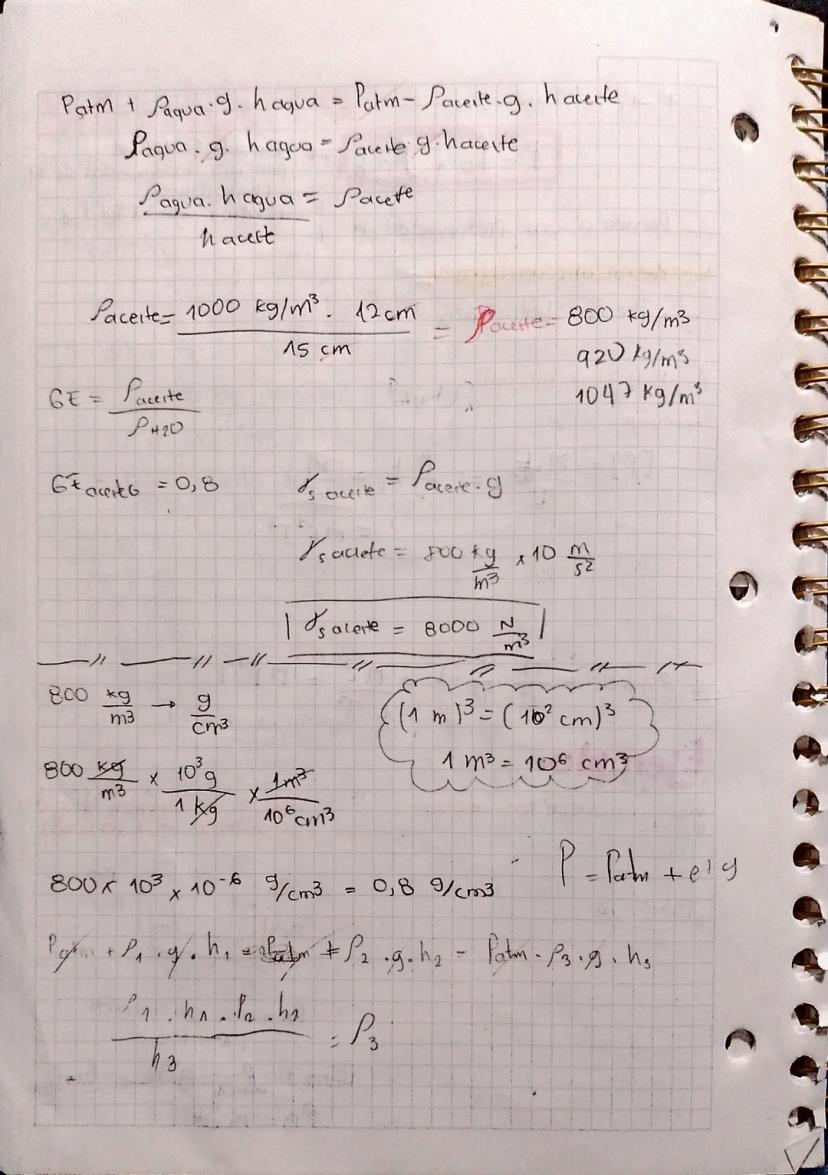 Patm + ρagua·g·hagua = Patm - ρaceite·g·haceite
ρagua·g·hagua = ρaceite g·haceite
ρagua·hagua / haceit = ρaceite
ρaceite = 1000 kg/m³ · 12cm / 15 cm = ρaceite = 800 kg/m³
920 kg/m³
1047 kg/m³
GE = ρaceite / ρH2O
GE aceite = 0,8
γs aceite = ρaceite·g
γs aciete = 800 kg/m³ x 10 m/s²
γs aceite = 8000 N/m³
800 kg/m³ → g/cm³
(1 m)³ = (10² cm)³
1 m³ = 10⁶ cm³
800 kg/m³ x 10³g/1 kg x 1m³/10⁶cm³
800 x 10³ x 10⁻⁶ g/cm³ = 0,8 g/cm³
P = Patm +
Patm + ρ1·g·h1 = Patm + ρ2·g·h2 = Patm · ρ3·g·h3
ρ1·h1·ρ2·h2 / h3 = ρ3